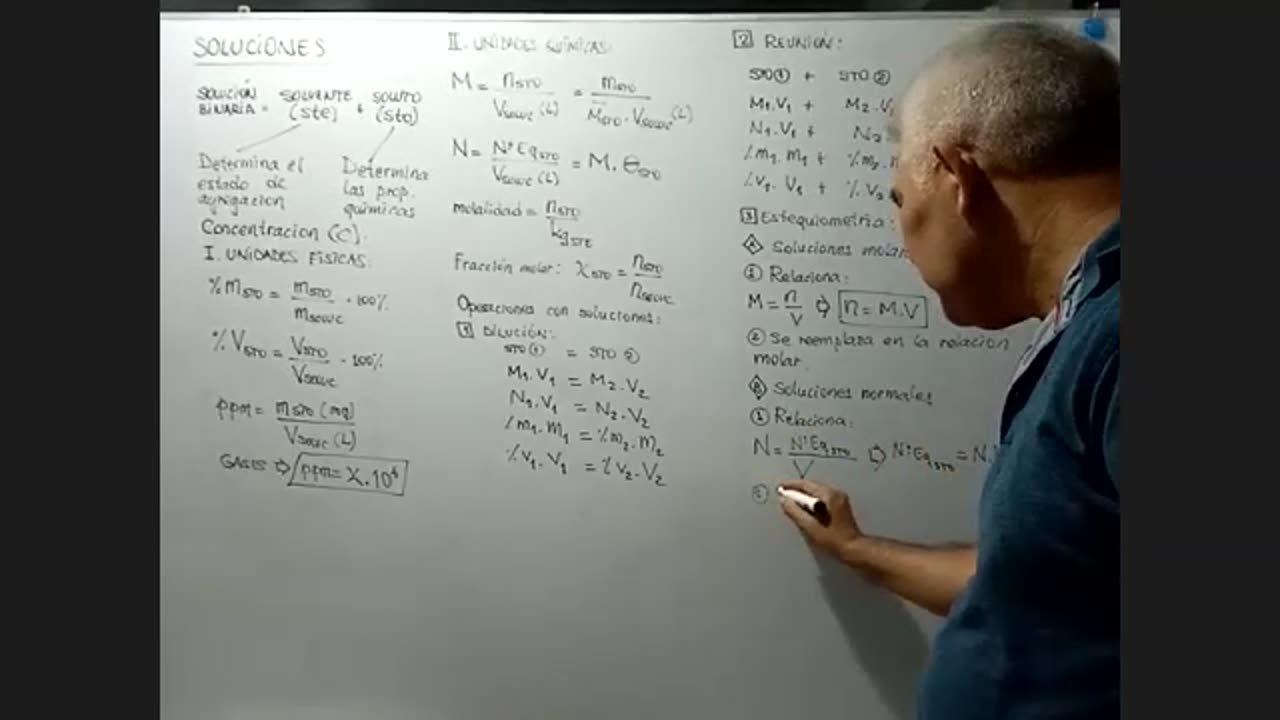 SOLUCIONES
SOLUCIÓN BINARIA = SOLVENTE (ste) + SOLUTO (sto)
Determina el estado de agregacion
Determina las prop. químicas
Concentracion (C).
I. UNIDADES FÍSICAS:
%m STO = m STO / m SOLUC · 100%
%V STO = V STO / V SOLUC · 100%
ppm = m STO (mg) / V SOLUC (L)
GASES ⇨ ppm = X.10⁶
II. UNIDADES QUÍMICAS:
M = n STO / V SOLUC (L) = m STO / M̄ STO · V SOLUC (L)
N = N°Eq STO / V SOLUC (L) = M. θ STO
molalidad = n STO / kg STE
Fracción molar: X STO = n STO / n SOLUC
Operaciones con soluciones:
1 DILUCIÓN:
STO ① = STO ②
M₁.V₁ = M₂.V₂
N₁.V₁ = N₂.V₂
%m₁.m₁ = %m₂.m₂
%V₁.V₁ = %V₂.V₂
2 REUNIÓN:
STO ① + STO ②
M₁.V₁ + M₂.V₂
N₁.V₁ + N₂
%m₁.m₁ + %m₂.
%V₁.V₁ + %V₂
3 Estequiometria:
A Soluciones molar
① Relaciona:
M = n / V ⇨ n = M.V
② Se reemplaza en la relacion
molar.
B Soluciones normales
① Relaciona:
N = N°Eq STO / V ⇨ N°Eq STO = N.
②